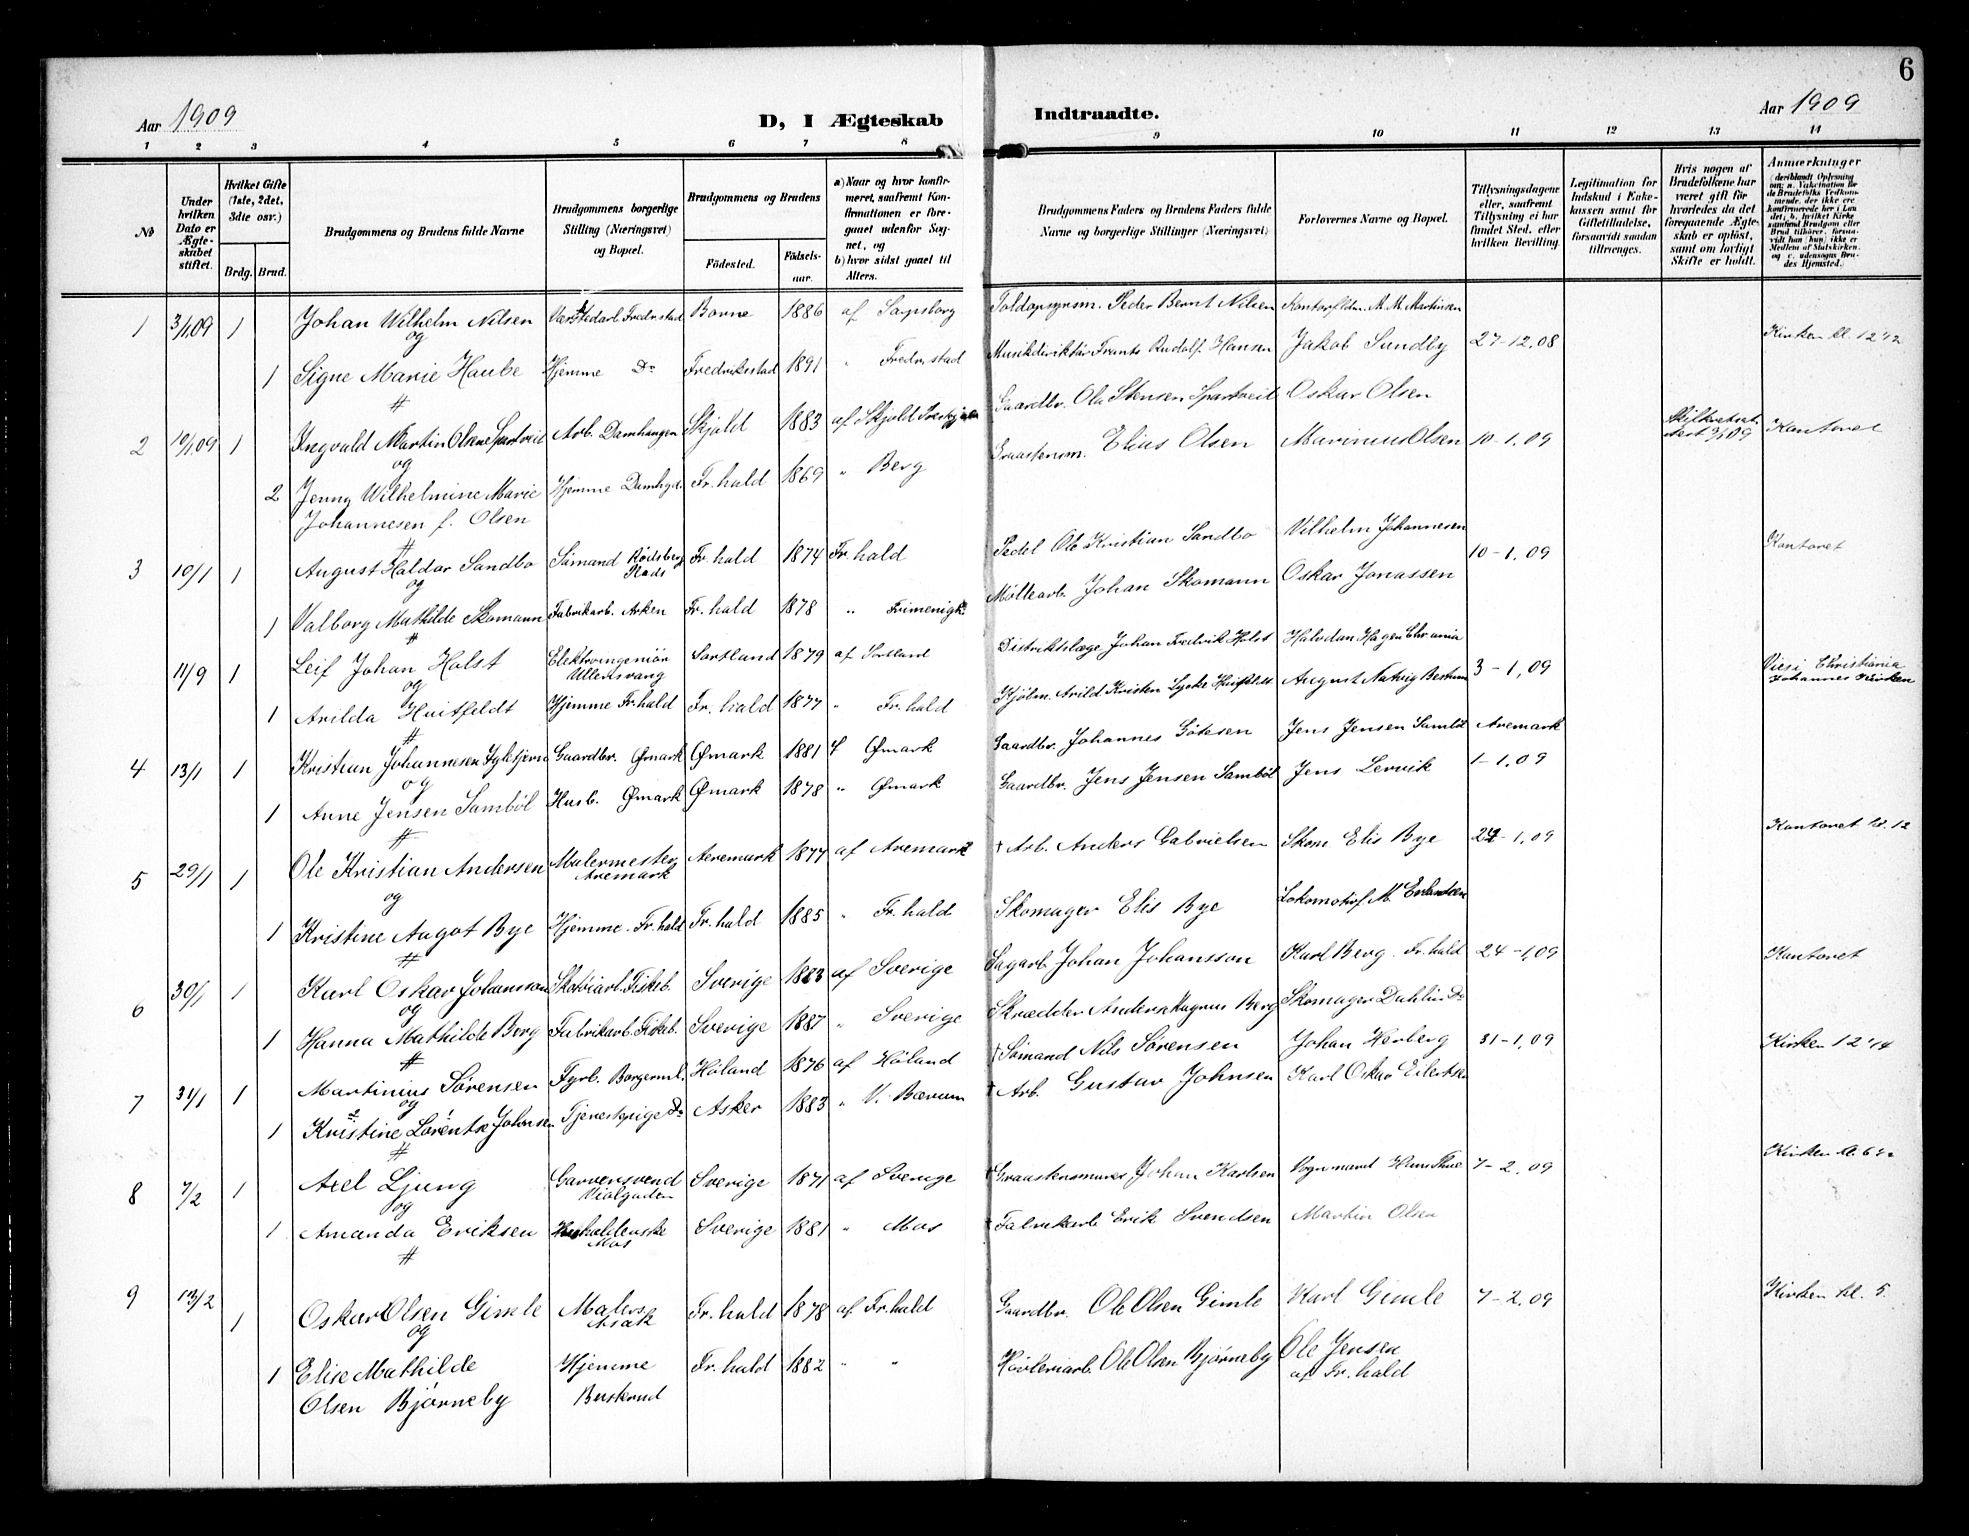 6
Aar 1909
D, I Ægteskab Indtraadte.
Aar 1909
1 2 3 4 5 6 7 8 9 10 11 12 13 14
No
Under hvilken Dato er Ægteskabet stiftet.
Hvilket Gifte (1ste, 2det, 3die osv.)
Brdg. Brud.
Brudgommens og Brudens fulde Navne
Brudgommens borgerlige Stilling (Næringsvei) og Bopæl.
Brudgommens og Brudens
Födested. Födselsaar.
a) Naar og hvor konfirmeret, saafremt Konfirmationen er foregaaet udenfor Sognet, og
b) hvor sidst gaaet til Alters.
Brudgommens Faders og Brudens Faders fulde Navne og borgerlige Stillinger (Næringsvei)
Forlovernes Navne og Bopæl.
Tillysningsdagene eller, saafremt Tillysning ei har fundet Sted, efter hvilken Bevilling.
Legitimation for Indskud i Enkekassen samt for Giftetilladelse, forsaavidt saadan tiltrenges.
Hvis nogen af Brudefolkene har været gift før hvorledes da det foregaaende Ægteskab er oplöst, samt om lovligt Skifte er holdt.
Anmærkninger
1 3/1 09 1 Johan Wilhelm Nilsen Fredrstad Borne 1886 af Sapsborg Toldopsynsm. Peder Bernt Nilsen M. M. Martinsen
og
1 Signe Marie Haube Hjemme Do Fredrikstad 1891 " Fredrstad Musikdirektör Frants Rudolf Hansen Jakob Sundby 27-12.08 Kirken kl. 12
#
2 10/1 09 1 Ingvald Martin Olsen Spartveit Arb. Damhaugen Skjold 1883 af Skjold Gaardbr. Ole Stensen Spartveit Oskar Olsen
og
2 Jenny Wilhelmine Marie Johannesen f. Olsen Hjemme Damhgd. Fr. hald 1869 " Berg Elias Olsen Marinius Olsen 10-1.09 Kontoret
#
3 10/1 1 August Haldor Sandbo Sömand Rödsberg Fr. hald 1874 Fr. hald Pedel Ole Kristian Sandbo Vilhelm Johannesen 10-1.09 Kontoret
og
1 Valborg Mathilde Skomann Fabrikarb. Asken Fr. hald 1878 " Frimenigh. Møllearb. Johan Skomann Oskar Jonassen
#
11/9 1 Leif Johan Holst Elektroingeniör Ullensvang Sortland 1879 af Sortland Distriktslæge Johan Fredrik Holst Halvdan Hagen Chrania
og
1 Arilda Huitfeldt Hjemme Fr. hald Fr. hald 1877 " Fr. hald Arild Kristen Lycke Huitfeldt August Natvig Bestum 3-1,09 Viesi Christiania Johannes Kirken
#
4 13/1 1 Kristian Johannesen Gaardbr. Ømark Ømark 1881 Ømark Gaardbr. Johannes Götesen Jens Jensen Samböl Aremark
og
1 Anne Jensen Samböl Husb. Ømark Ømark 1878 " Ømark Gaardbr. Jens Jensen Samböl Jens Lervik 1-1.09
#
5 29/1 1 Ole Kristian Andersen Malermester Aremark Aremark 1877 af Aremark † Arb. Anders Gabrielsen Skom. Elis Bye 24-1,09 Kontoret kl. 12
og
1 Kristine Aagot Bye Hjemme Fr. hald Fr. hald 1885 " Fr. hald Skomager Elis Bye Lokomotivf. M. Erlandsen
#
6 30/1 1 Karl Oskar Johansson Skotöiarb. Fiskeb. Sverige 1883 af Sverige Sagarb. Johan Johansson Karl Berg Fr. hald 24-1,09 Kontoret
og
1 Hanna Mathilde Berg Fabrikarb. Fiskeb. Sverige 1887 " Sverige Skrædder Anders Magnus Berg Skomager Dahlin Do
#
7 31/1 1 Martinius Sörensen Fyrb. Borgerml. Höland 1876 af Höland † Sömand Nils Sörensen Johan Herberg 31-1.09 Kirken 12
og
1 Kristine Lorentse Johnsen Tjenestepige Do Asker 1883 " V. Bærum † Arb. Gustav Johnsen Karl Oskar Eilertsen
#
8 7/2 1 Axel Ljung Garversvend Violgaden Sverige 1871 af Sverige † Graastensmurer Johan Karlsen Vognmand Hans Thue 7-2.09 Kirken kl. 6
og
1 Amanda Eriksen Mos Sverige 1881 " Mos † Fabrikarb Erik Svendsen Martin Olsen
#
9 13/2 1 Oskar Olsen Gimle Maler Asak Fr. hald 1878 af Fr. hald Gaardbr. Ole Olsen Gimle Karl Gimle 7-2.09 Kirken kl. 5.
og
1 Elise Mathilde Olsen Bjørneby Hjemme Buskerud Fr. hald 1882 " " Høvleriarb. Ole Olsen Bjørneby Ole Jensen af Fr. hald